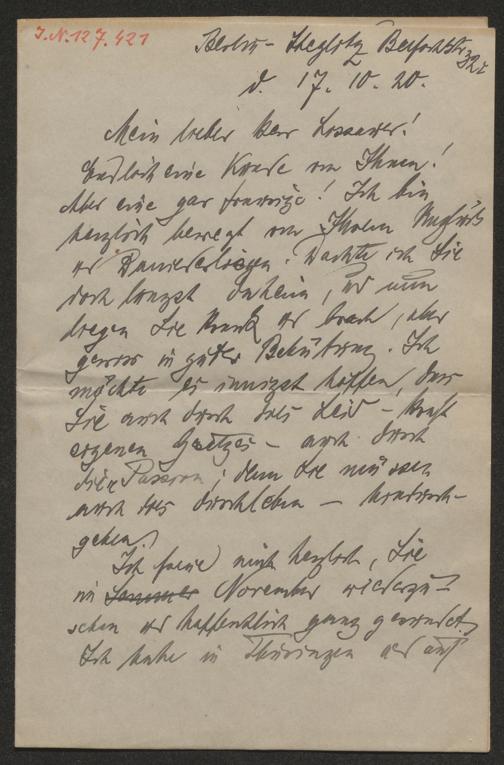 I.N. 127.421
Berlin-Steglitz Belfortstr.
d. 17.10.20.
Mein lieber Herr
Endlich eine Kunde von Ihnen!
Aber eine gar traurige! Ich bin
herzlich bewegt von Ihrem Unglück
u. Dachte ich Sie
doch längst daheim, u. nun
liegen Sie krank u. brach, aber
gewiss in guter Behütung. Ich
möchte es innigst hoffen, dass
Sie auch durch dies Leid – kraft
eigenen Gesetzes – auch durch
diese Passion; denn Sie müssen
auch dies durchleben – hindurch-
gehen.
Ich freue mich herzlich, Sie
im Sommer November wiederzu-
sehen u. hoffentlich ganz gesundet.
Ich habe in Thüringen und auf